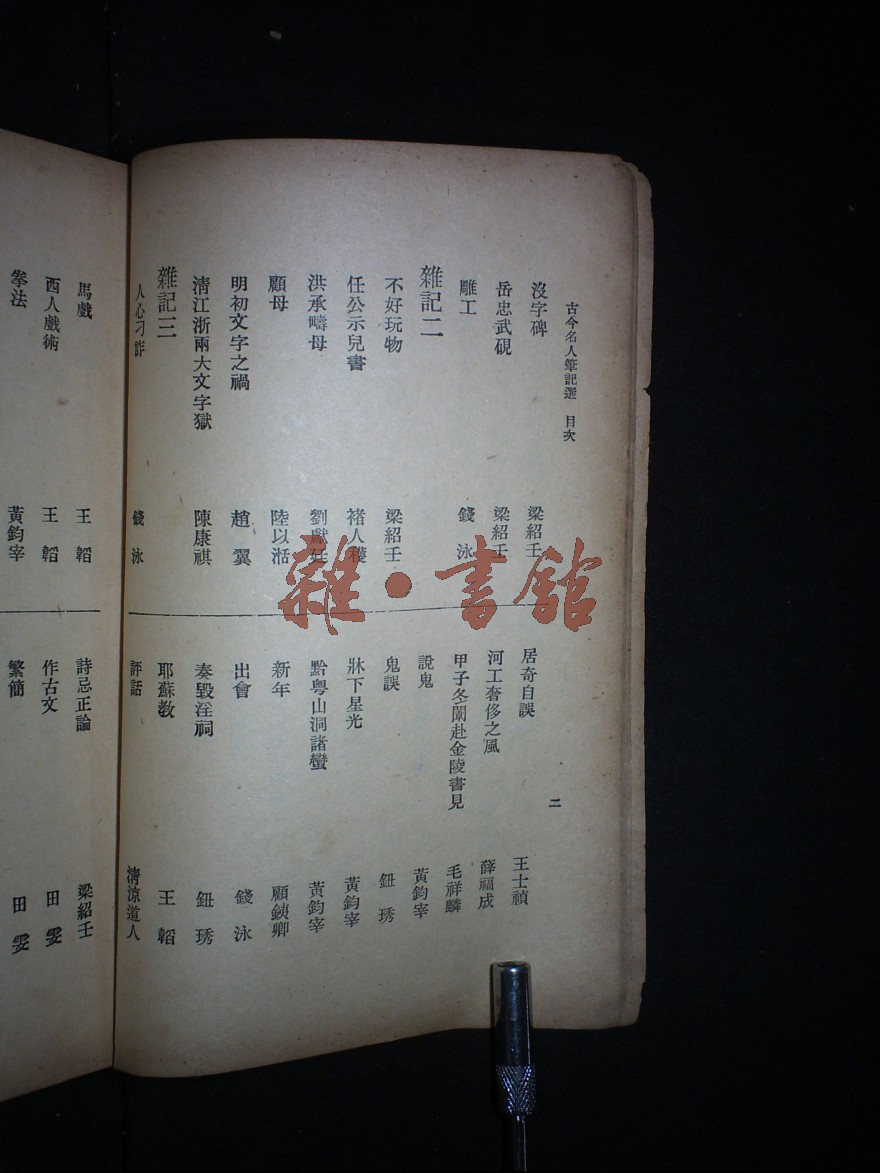 古今名人筆記選 目次
沒字碑 梁紹壬
岳忠武硯 梁紹壬
雕工 錢泳
雜記二
不好玩物 梁紹壬
任公示兒書 褚人穫
洪承疇母 劉獻廷
顧母 陸以湉
明初文字之禍 趙翼
清江浙兩大文字獄 陳康祺
雜記三
人心刁詐 錢泳
居奇自誤 王士禎
河工奢侈之風 薛福成
甲子冬闈赴金陵書見 毛祥麟
說鬼 黃鈞宰
鬼誤 鈕琇
牀下星光 黃鈞宰
黔粵山洞諸蠻 黃鈞宰
新年 顧銕卿
出會 錢泳
奏毀淫祠 鈕琇
耶蘇教 王韜
評話 清涼道人
二
馬戲 王韜
西人戲術 王韜
拳法 黃鈞宰
詩忌正論 梁紹壬
作古文 田雯
繁簡 田雯
雜·書館